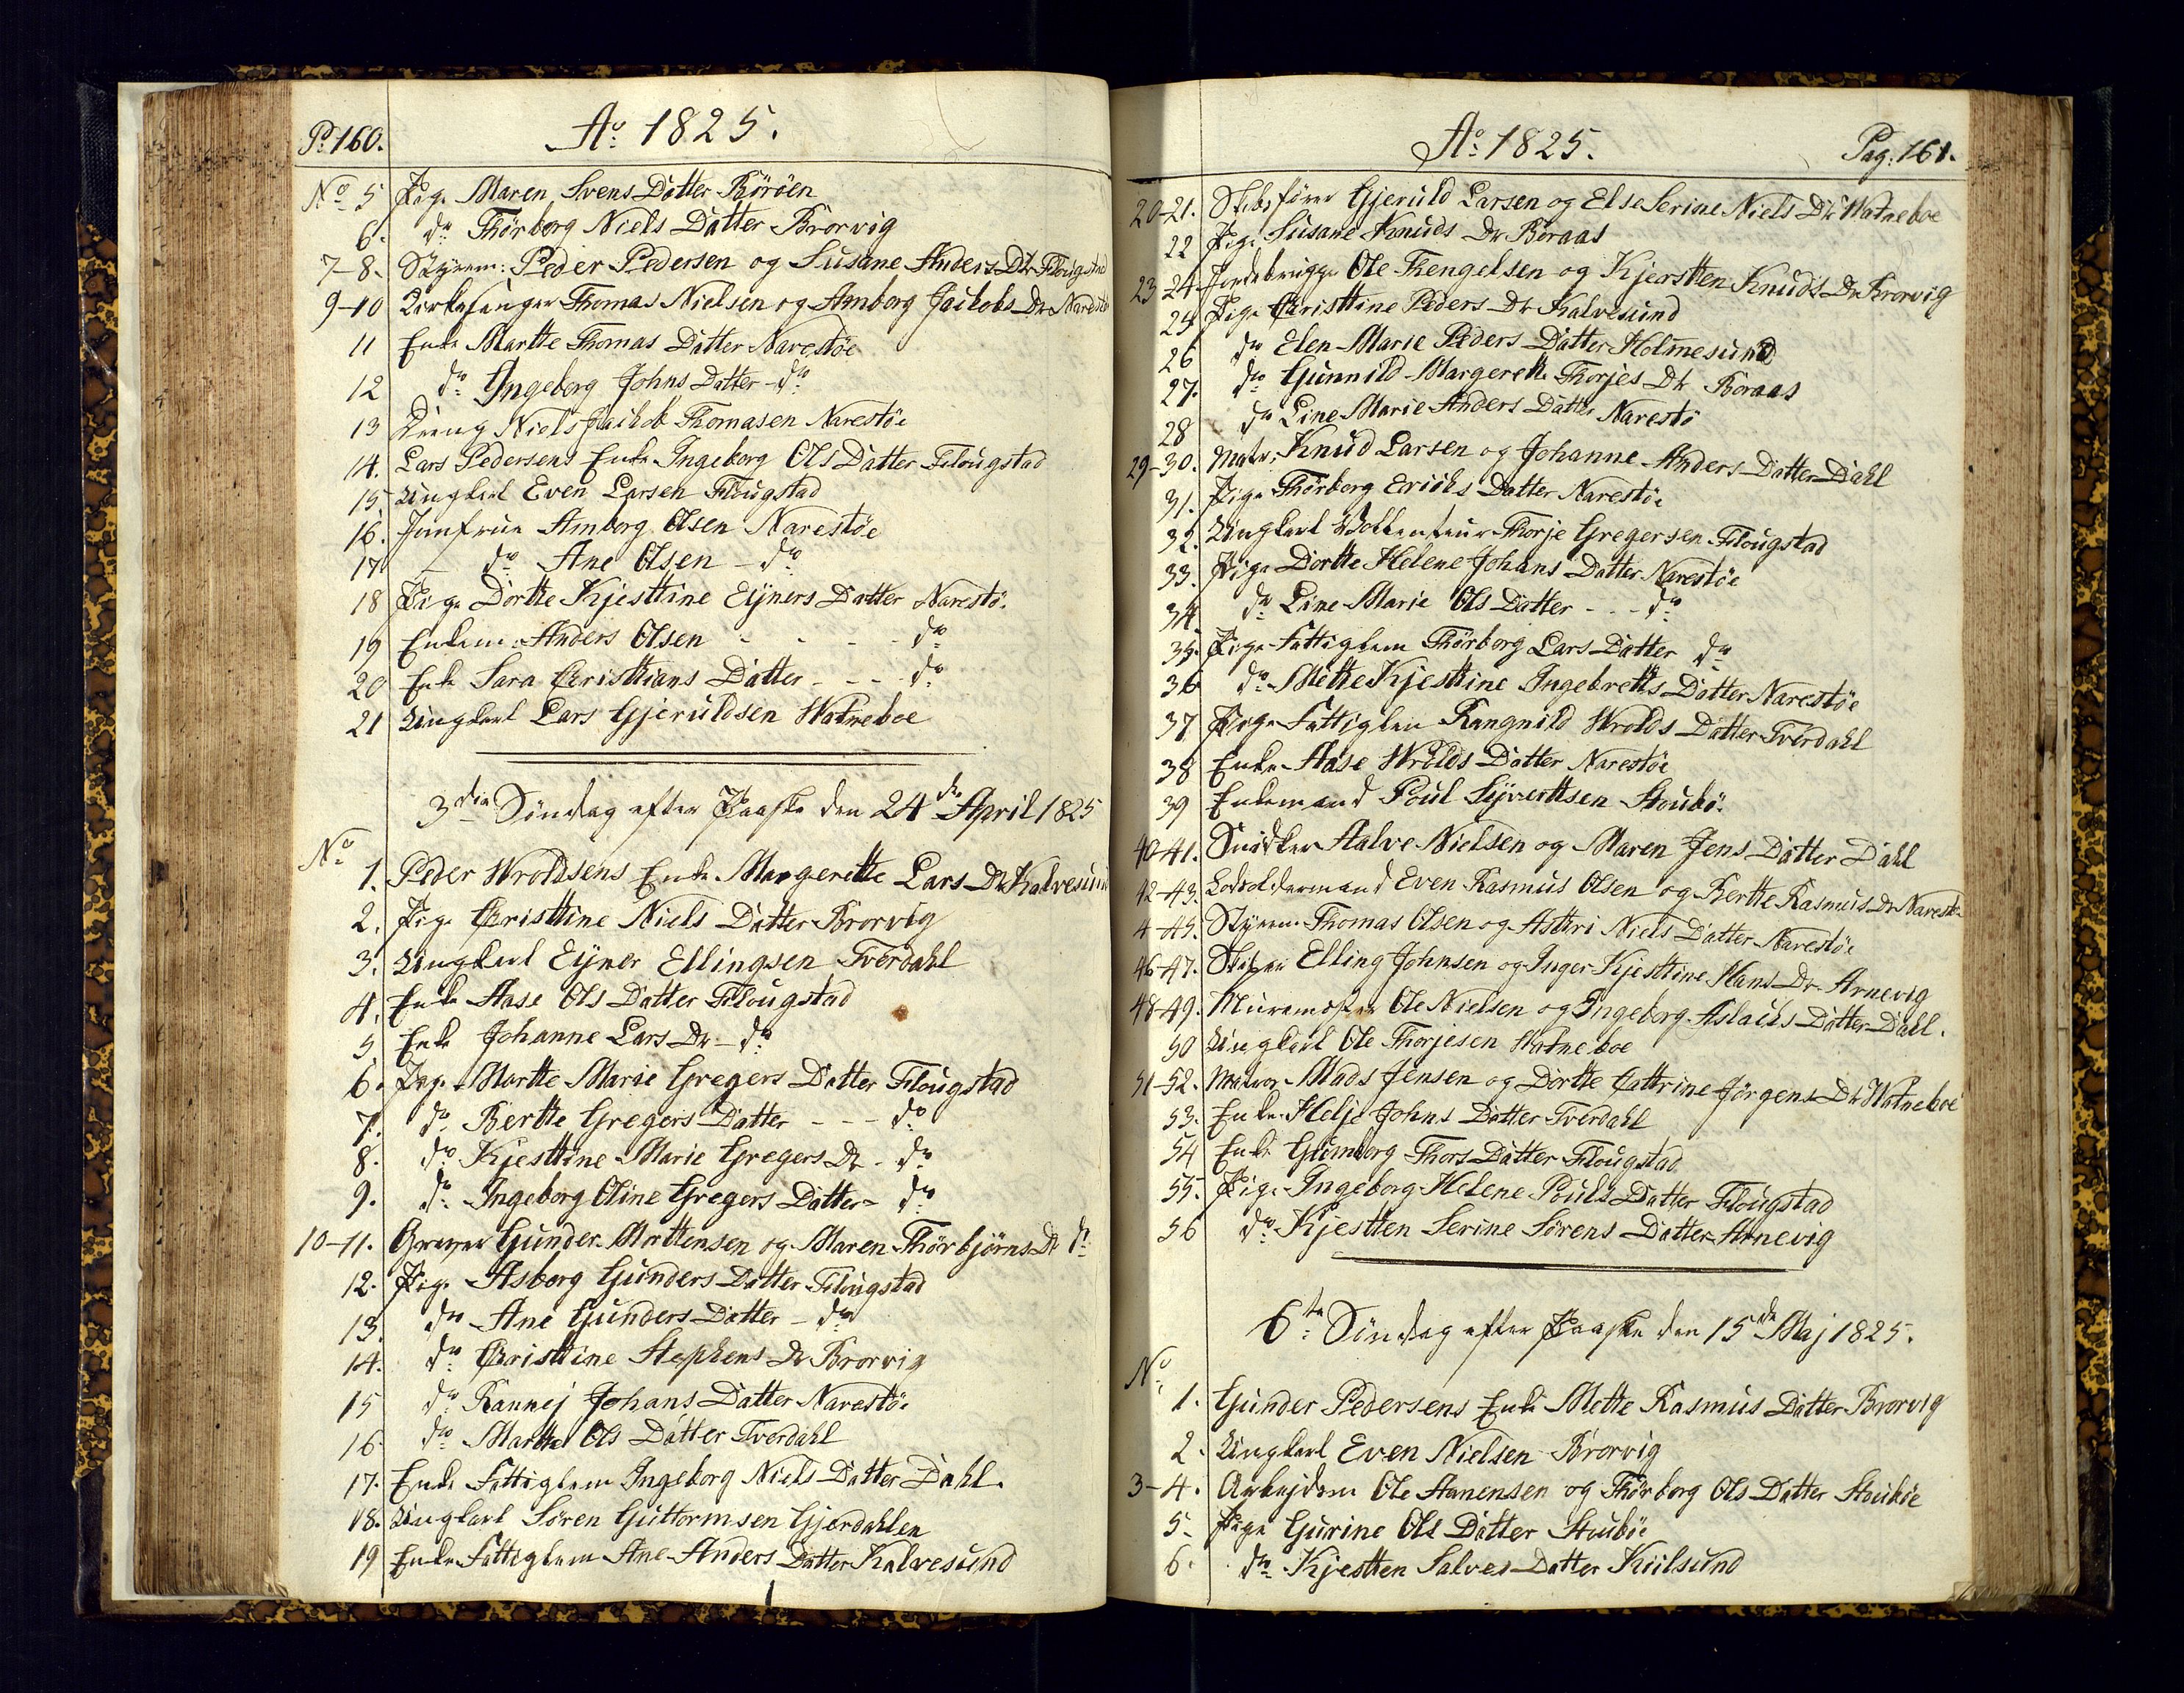 P: 160.
Ao: 1825.
No: 5 Pige Maren Svens Datter Böröen
6. do: Thörborg Niels Datter Brorvig
7-8. Styrem: Peder Pedersen og Susane Anders Dtr Flougstad
9-10 Kirkesanger Thomas Nielsen og Amborg Jackobs Dr Narestöe
11 Enke Martte Thomas Datter Narestöe
12 do: Ingeborg Johns Datter - do:
13 Dreng Niels Jackob Thomasen Narestöe
14. Lars Pedersens Enke Ingeborg Ols Datter Flougstad
15. Ungkarl Even Larsen Flougstad
16. Jomfrue Amborg Olsen Narestöe
17 do: Ane Olsen - do:
18 Pige Dortte Kjesttine Eyners Datter Narestö.
19 Enkem: Anders Olsen - - - - do:
20 Enke Sara Christtians Datter - - - do:
21 Ungkarl Lars Gjeruldsen Watneboe
3die Söndag efter Paaske den 24de April 1825
No
1. Peder Wroldsens Enke Margerette Lars Dtr Kalvesund
2. Pige Christtine Niels Datter Brorvig
3. Ungkarl Eyner Ellingsen Tverdahl
4. Enke Aase Ols Datter Flougstad
5. Enke Johanne Lars Dr - do:
6. Pige Martte Marie Gregers Datter Flougstad
7. do: Bertte Gregers Datter - - - do:
8. do: Kjesttine Marie Gregers Dr - do:
9. do: Ingeborg Oline Gregers Datter - do:
10-11. Graver Gunder Morttensen og Maren Thörbjörns Dr do:
12. Pige Asborg Gunders Datter Flougstad
13. do: Ane Gunders Datter - do:
14. do: Christtine Stephens Dr Brorvig
15 do: Rannej Johans Datter Narestöe
16. do: Martha Ols Datter Tverdahl
17. Enke Fattiglem Ingeborg Niels Datter Dahl.
18. Ungkarl Sören Guttormsen Gjerdahlen
19 Enke Fattiglem Ane Anders Datter Kalvesund
Ao: 1825.
Pag. 161.
20-21. Skibsförer Gjeruld Larsen og Else Serine Niels Dtr Watneboe
22 Pige Susane Knuds Dr Boraas
23-24 Jordebrugge Ole Thengelsen og Kjerstten Knuds Dr Brorvig
25 Pige Christtine Peders Dr Kalvesund
26 do: Elen Marie Peders Datter Holmesund
27. do: Gunnild Margerett Thorjes Dr Boraas
28 do: Line Marie Anders Datter Narestö
29-30. Matr: Knud Larsen og Johanne Anders Datter Dahl
31. Pige Thörborg Ericks Datter Narestöe
32. Ungkarl Thorje Gregersen Flougstad
33. Pige Dortte Helene Johans Datter Narestöe
34 do: Line Marie Ols Datter - - - do:
35. Pige Fattiglem Thörborg Lars Datter do:
36 do: Mette Kjesttine Ingebretts Datter Narestöe
37 Pige Fattiglem Rangnild Wrolds Datter Tverdahl
38 Enke Aase Wrolds Datter Narestöe
39 Enkemand Poul Syverttsen Stouböe
40-41. Snidker Halve Nielsen og Maren Jens Datter Dahl
42-43. Lodsoldermand Even Rasmus Olsen og Bertte Rasmus Dr Narestöe
4-45. Styrem. Thomas Olsen og Asttri Niels Datter Narestöe
46-47. Skiper Elling Johnsen og Inger Kjesttine Hans Dr Arnevig
48-49. Muremöster Ole Nielsen og Ingeborg Aslacks Datter Dahl.
50 Ungkarl Ole Thorjesen Watneboe
51-52. Matros Mads Jensen og Dortte Cattrine Jörgens Dtr Watneboe
53. Enke Helje Johns Datter Tverdahl
54 Enke Gumborg Thors Datter Flougstad
55. Pige Ingeborg Helene Pouls Datter Flougstad
56 do: Kjestten Serine Sörens Datter Arnevig
6te: Söndag efter Paaske den 15de Maj 1825.
No:
1. Gunder Pedersens Enke Mette Rasmus Datter Brorvig
2. Ungkarl Even Nielsen Brorvig
3-4. Arbejdsm Ole Aanensen og Thörborg Ols Datter Stouböe
5. Pige Gurine Ols Datter Stouböe
6. do: Kjestten Salves Datter Kiilsund